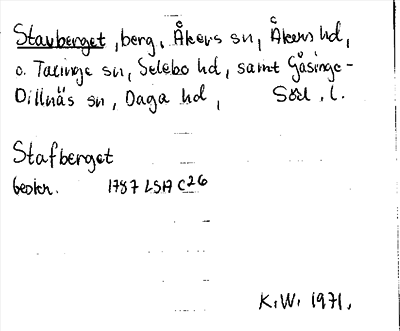 Stavberget, berg, Åkers sn, Åkers hd,
o. Taxinge sn, Selebo hd, samt Gåsinge-
Dillnäs sn, Daga hd, Södl. l.
Stafberget
beskr. 1787 LSA C26
K.W. 1971.